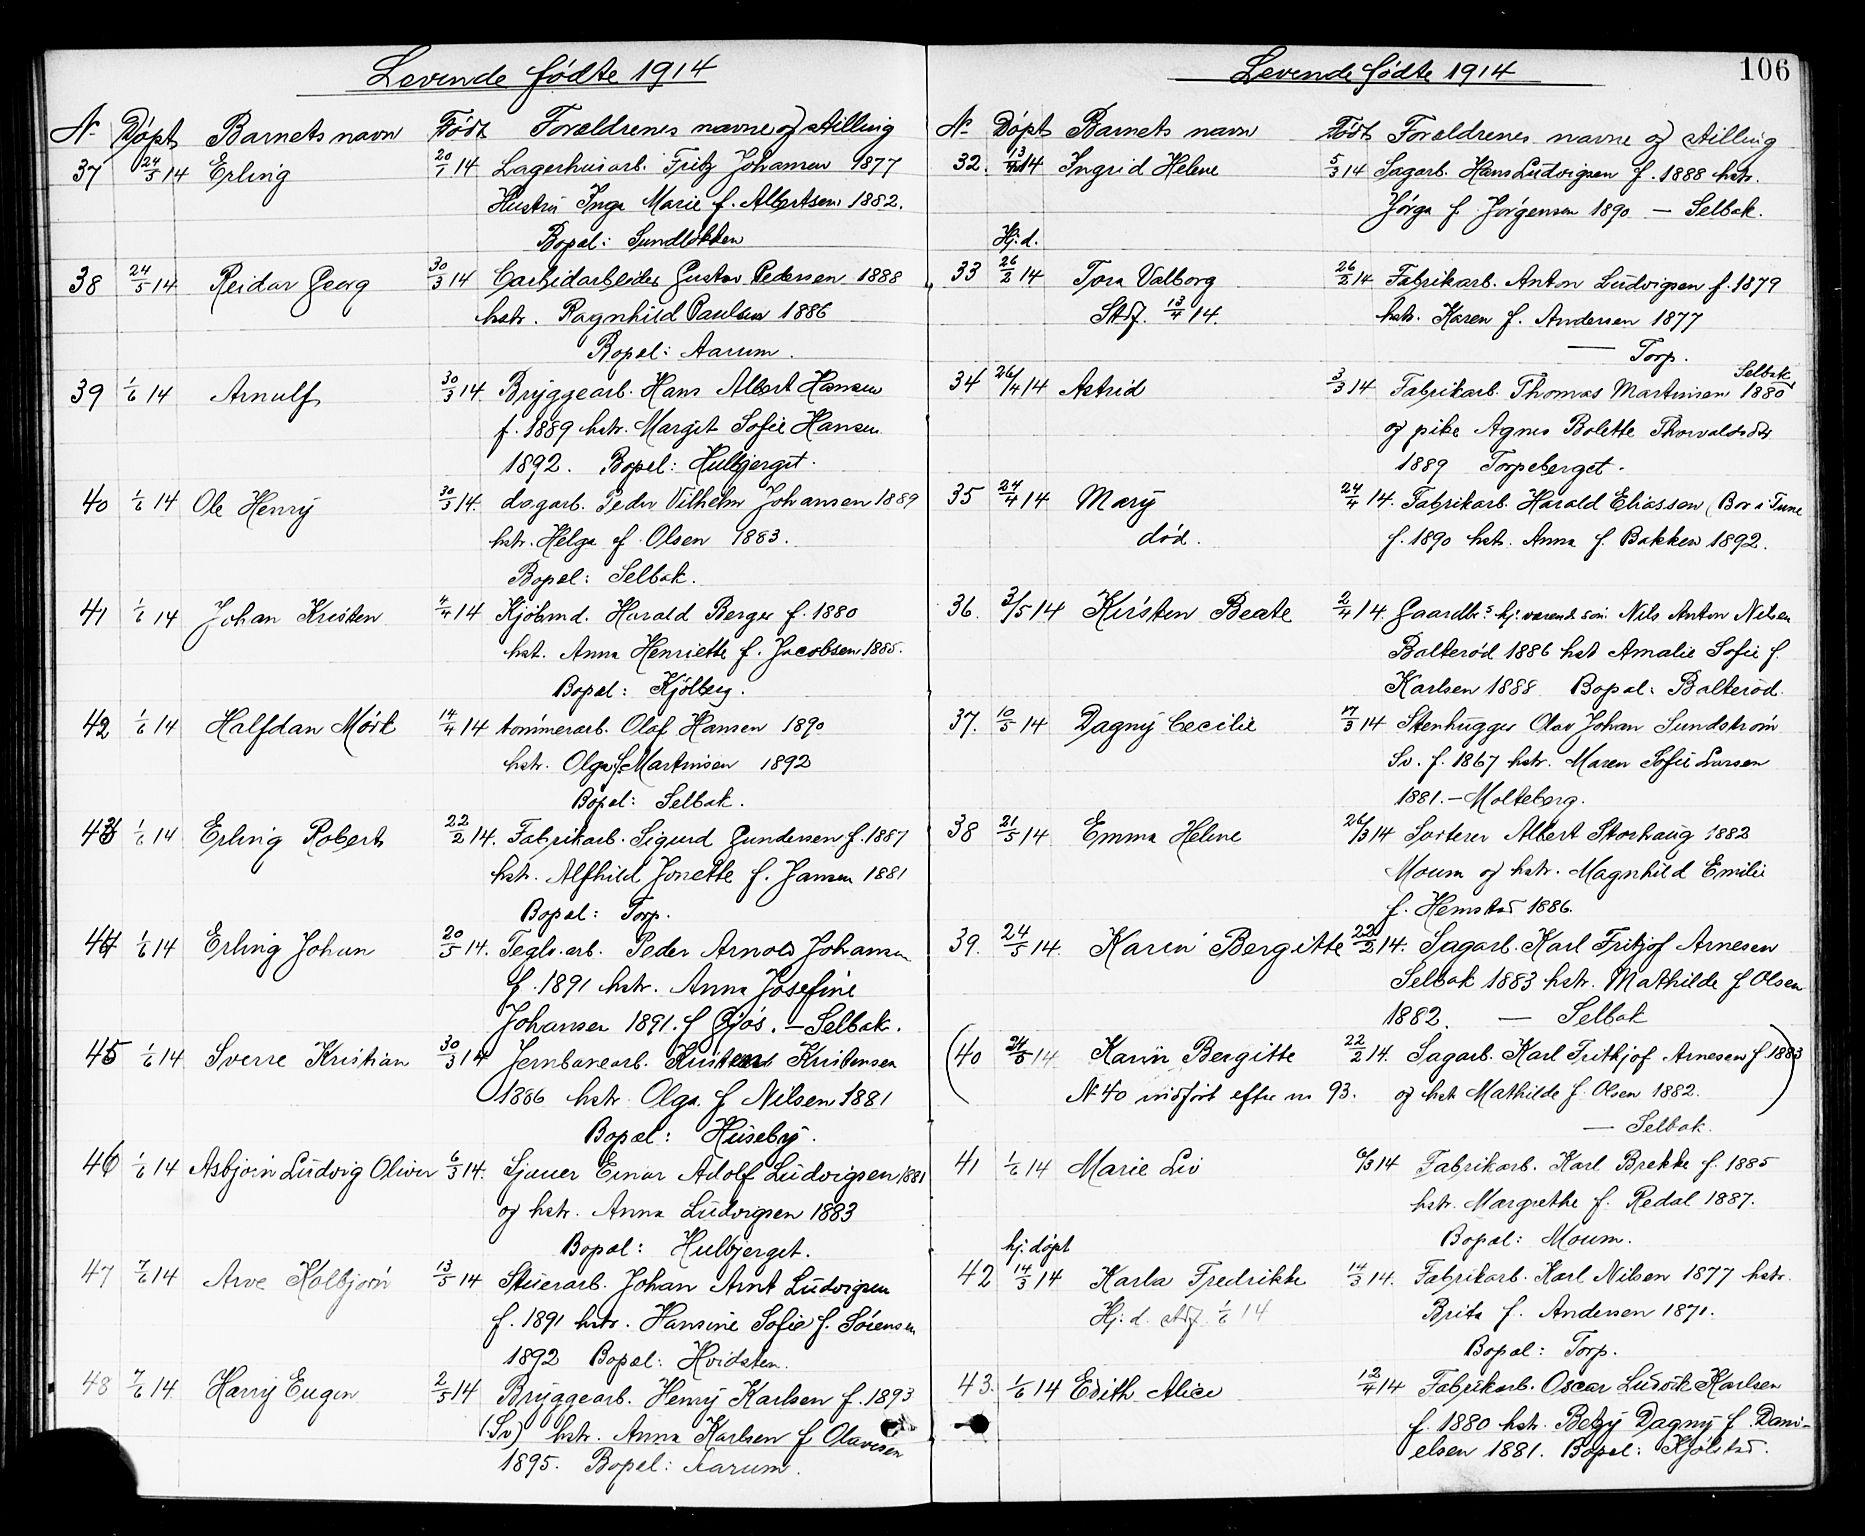 Levende fødte 1914
Nr Døpt Barnets navn Født Forældrenes navne og stilling
37 24/5 14 Erling 20/1 14 Lagerhusarb. Fritz Johansen 1877
Hustru Inga Marie f. Albertsen 1882.
Bopæl: Sundløkken
38 24/5 14 Reidar Georg 30/3 14 Carbidarbeider Gustav Pedersen 1888
hstr. Ragnhild Paulsen 1886
Bopæl: Aarum.
39 1/6 14 Arnulf 30/3 14 Bryggearb. Hans Albert Hansen
f. 1889 hstr. Margit Sofie Hansen
1892. Bopæl: Hulbjerget.
40 1/6 14 Ole Henry 30/3 14. dagarb. Peder Vilhelm Johansen 1889
hstr. Helga f. Olsen 1883.
Bopæl: Selbak.
41 1/6 14 Johan Kristen 4/4 14 Kjøbmd. Harald Berger f. 1880
hst. Anna Henriette f. Jacobsen 1885.
Bopæl: Kjølberg.
42 1/6 14 Halfdan Mørk 14/4 14 tømmerarb. Olaf Hansen 1890
hstr. Olga f. Martinsen 1892
Bopæl: Selbak.
43 1/6 14 Erling Robert 22/2 14. Fabrikarb. Sigurd Gundersen f. 1887
hstr. Alfhild Jonette f. Jansen 1881
Bopæl: Torp.
44 1/6 14 Erling Johan 20/5 14. Tegls.arb. Peder Arnold Johansen
f. 1891 hstr. Anna Josefine
Johansen 1891. f Gjøs. — Selbak.
45 1/6 14 Sverre Kristian 30/3 14 Jernbanearb. Kristen Kristensen
1886 hstr. Olga f Nilsen 1881
Bopæl: Huseby.
46 1/6 14 Asbjørn Ludvig Oliver 6/3 14. Sjauer Einar Adolf Ludvigsen 1881
og hstr. Anna Ludvigsen 1883
Bopæl: Hulbjerget.
47 7/6 14 Arve Kolbjørn 13/5 14 Stuerarb. Johan Arnt Ludvigsen
f. 1891 hstr. Hansine Sofie f. Sørensen
1892 Bopæl: Hvidsten.
48 7/6 14 Harry Eugen 2/5 14 Bryggearb. Henry Karlsen f. 1893
(Sv) hstr. Anna Karlsen f Olavesen
1895. Bopæl: Aarum.
Levende fødte 1914 106
Nr Døpt Barnets navn Født Forældrenes navne og stilling
32. 13/4 14 Ingrid Helene 5/3 14 Sagarb. Hans Ludvigsen f. 1888 hstr.
Jørga f Jørgensen 1890 — Selbak.
Hj. d.
33 26/2 14 Tora Valborg 26/2 14 Fabrikarb. Anton Ludvigsen f. 1879
Stdf. 13/4 14. hstr. Karen f. Andersen 1877
— Torp.
34 26/4 14 Astrid 3/3 14 Fabrikarb. Thomas Martinsen 1880 Selbak
og pike Agnes Bolette Thorvaldsdtr
1889 Torpeberget.
35 24/4 14 Mary 24/4 14. Fabrikarb. Harald Eliassen (Bor i Tune
død. f. 1890 hstr. Anna f. Bakken 1892.
36. 3/5 14 Kirsten Beate 2/4 14. Gaardbr.s hj. værende søn Nils Anton Nilsen
Balterød 1886 hst Amalie Sofie f.
Karlsen 1888 Bopæl: Balterød.
37. 10/5 14 Dagny Cecilie 17/3 14 Stenhugger Olav Johan Sundstrøm
Sv. f. 1867 hstr. Maren Sofie Larsen
1881. — Molteberg.
38 21/5 14 Emma Helene 26/3 14 Sorterer Albert Storhaug 1882
Moum og hstr. Magnhild Emilie
f. Hemstad 1886.
39. 24/5 14. Karin Bergitte 22/2 14. Sagarb. Karl Fritjof Arnesen
Selbak 1883 hstr. Mathilde f Olsen
1882. — Selbak
(40 24/5 14 Karin Bergitte 22/2 14. Sagarb. Karl Fritkjof Arnesen f. 1883
N 40 indført efter nr 93. og hst. Mathilde f. Olsen 1882.)
— Selbak.
41 1/6 14 Marie Liv 6/3 14 Fabrikarb. Karl Brekke f. 1885
hstr. Margrethe f. Redal 1887.
Bopæl: Moum.
hj. døpt
42 14/3 14 Karla Fredrikke 14/3 14. Fabrikarb. Karl Nilsen 1877 hstr.
Hj. d. stdf. 1/6 14 Brita f. Andersen 1871.
Bopæl: Torp.
43. 1/6 14 Edith Alice 12/4 14 Fabrikarb. Oscar Ludvik Karlsen
f. 1880 hst. Betzy Dagny f. Dani-
elsen 1881. Bopæl: Kjølstad.